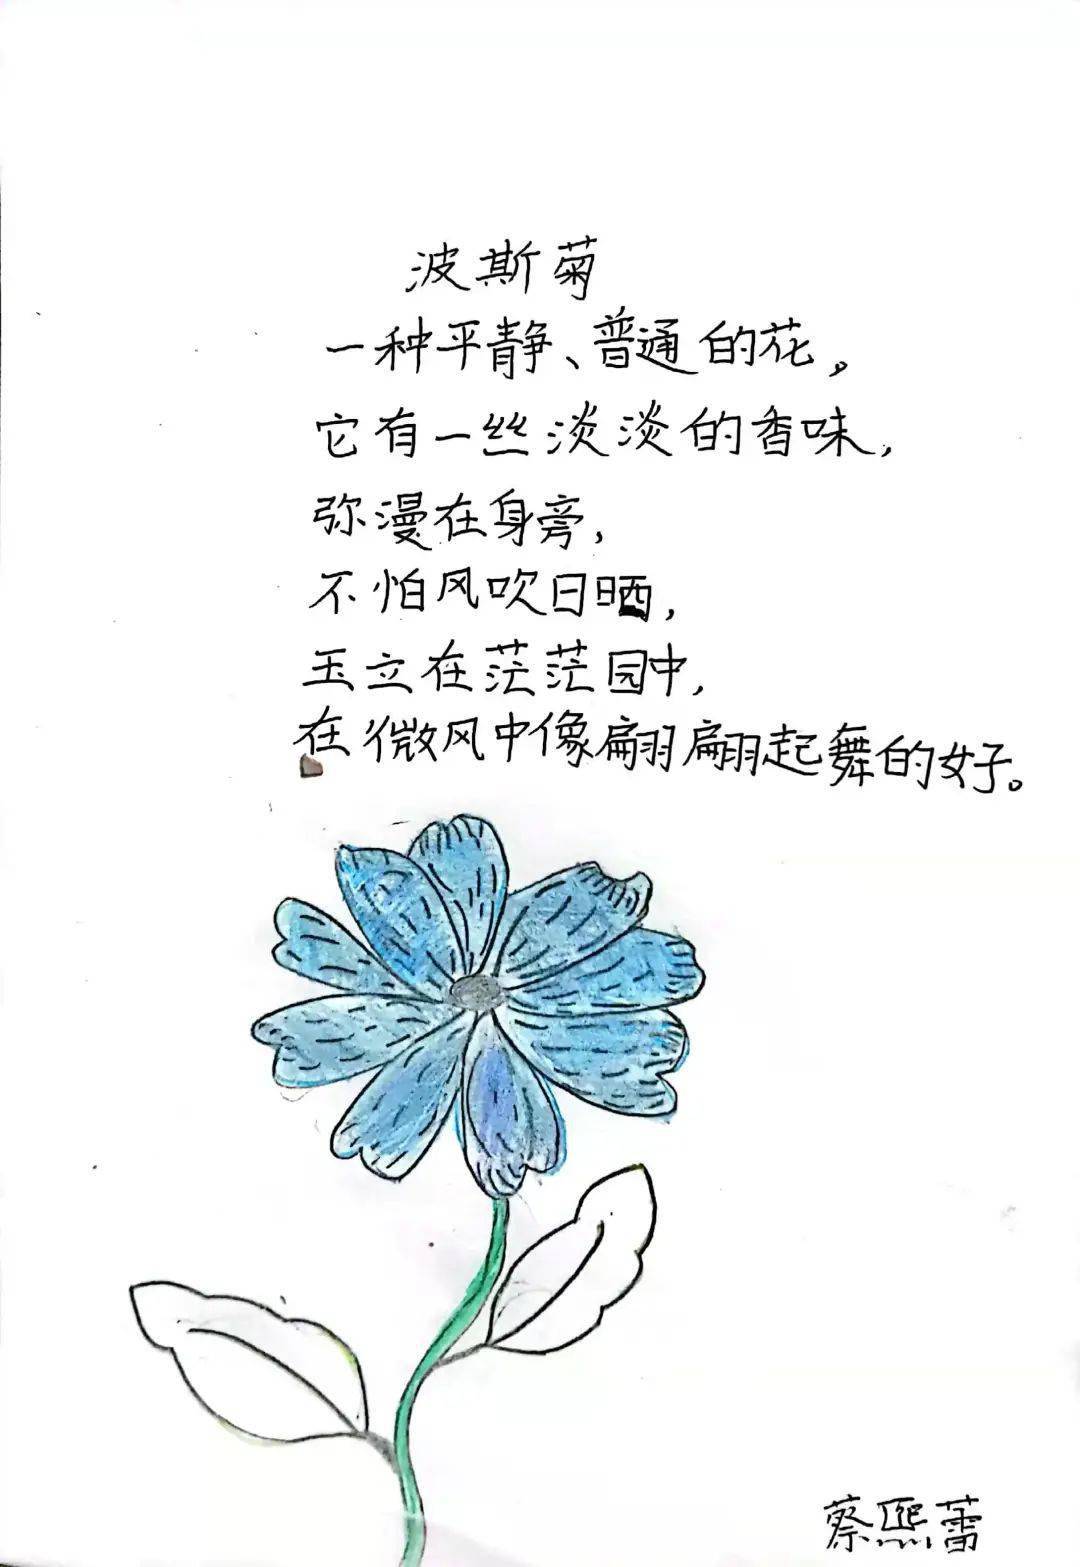 波斯菊
一种平静、普通的花。
它有一丝淡淡的香味,
弥漫在身旁,
不怕风吹日晒,
玉立在茫茫园中,
在微风中像翩翩起舞的女子。
蔡熙蕾